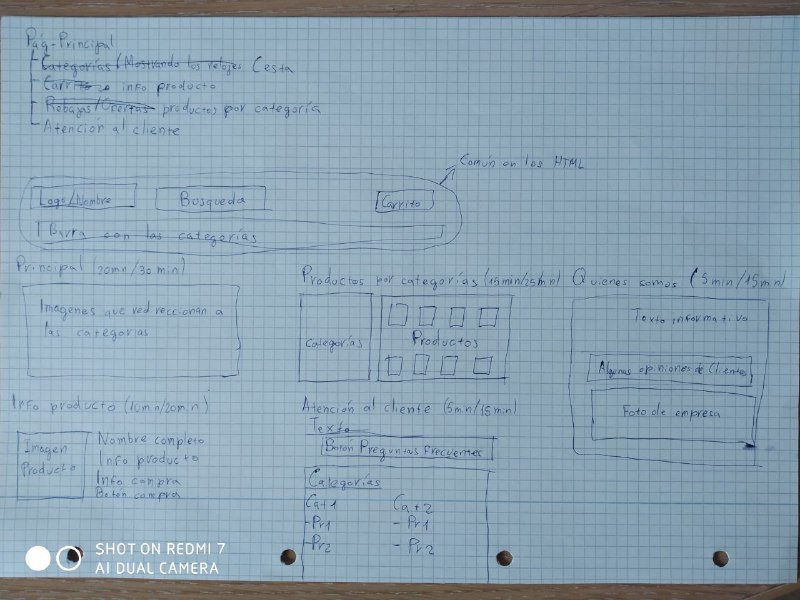 Pág-Principal
Categorías/Mostrando los relojes Cesta
Carrito info producto
Rebajas/Ofertas productos por categoría
Atención al cliente
Común en los HTML
Logo/Nombre
Busqueda
Carrito
Barra con las categorías
Principal (20mn/30min)
Imagenes que redireccionan a
las categorias
Productos por categorías (15min/25min)
Categorías
Productos
Quienes somos (5min/15min)
Texto informativo
Algunas opiniones de Clientes
Foto de empresa
Info producto (10mn/20min)
Imagen
Producto
Nombre completo
Info producto
Info compra
Boton compra
Atención al cliente (5min/15min)
Texto
Boton Preguntas Frecuentes
Categorías
Cat1 Cat2
-Pr1 -Pr1
-Pr2 -Pr2
SHOT ON REDMI 7
AI DUAL CAMERA